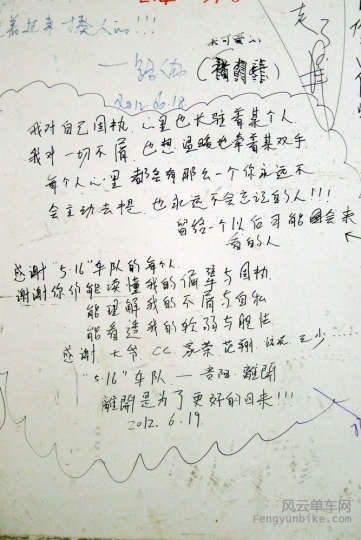 着过来 接人的!!!
2012.06.18
我对自己固执 心里也长驻着某个人
我对一切不屑 也想温暖地牵着某双手
每个人心里 都会有那么一个你永远不
会主动去提 也永远不会忘记的人!!!
留给一个以后可能会来
看的人
感谢"5·16"车队的每个人
谢谢你们能读懂我的倔犟与固执
能理解我的不屑与自私
能看透我的软弱与胆怯
感谢 大爷 CC 家荣 范翔
"5·16"车队——贵阳·離開
離開是为了更好的回来!!!
2012.6.19
风云单车网
Fengyunbike.com